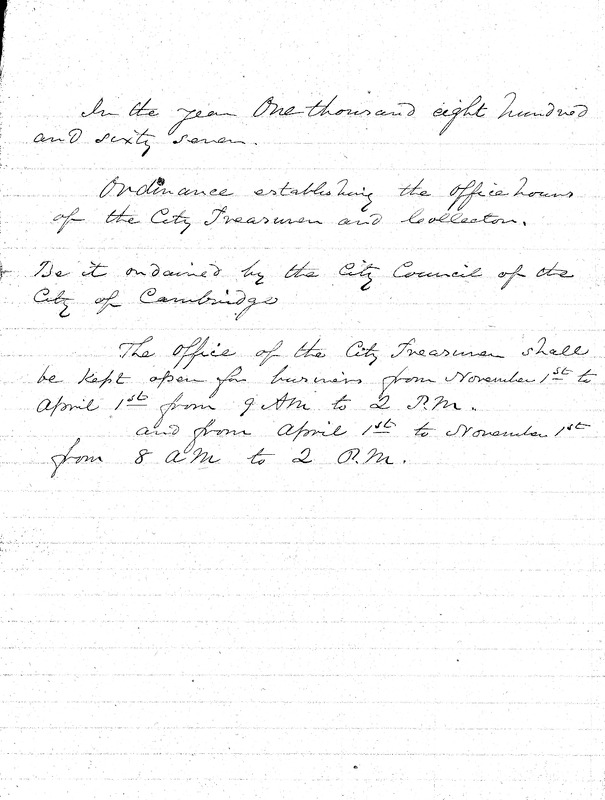 In the year One thousand eight hundred
and sixty seven.
Ordinance establishing the office hours
of the City Treasurer and Collector.
Be it ordained by the City Council of the
City of Cambridge
The office of the City Treasurer shall
be kept open for business from November 1st to
April 1st from 9 AM to 2 P.M.
and from April 1st to November 1st
from 8 AM to 2 P.M.